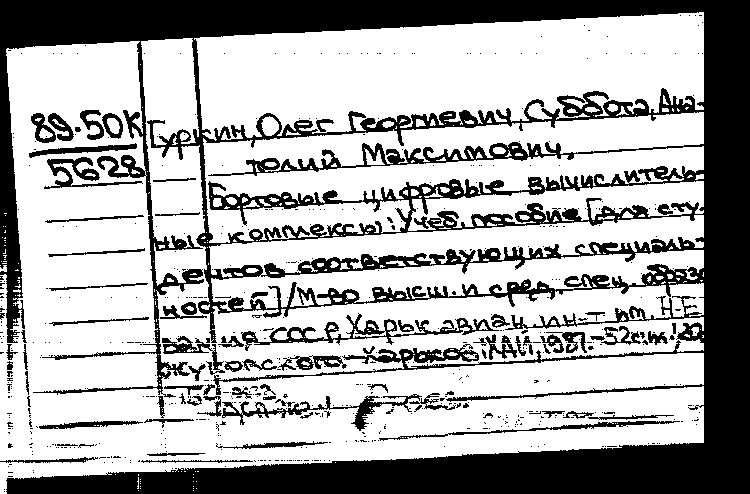 89-50К
5628
Гуркин, Олег Георгиевич, Суббота, Ана-
толий Максимович.
Бортовые цифровые вычислитель-
ные комплексы: Учеб. пособие [для сту-
дентов соответствующих специаль-
ностей] / М-во высш. и сред. спец. образо
вания СССР, Харьк. авиац. ин-т им. Н.Е
Жуковского. Харьков: ХАИ, 1987. - 52с.:ил.;
150 экз.